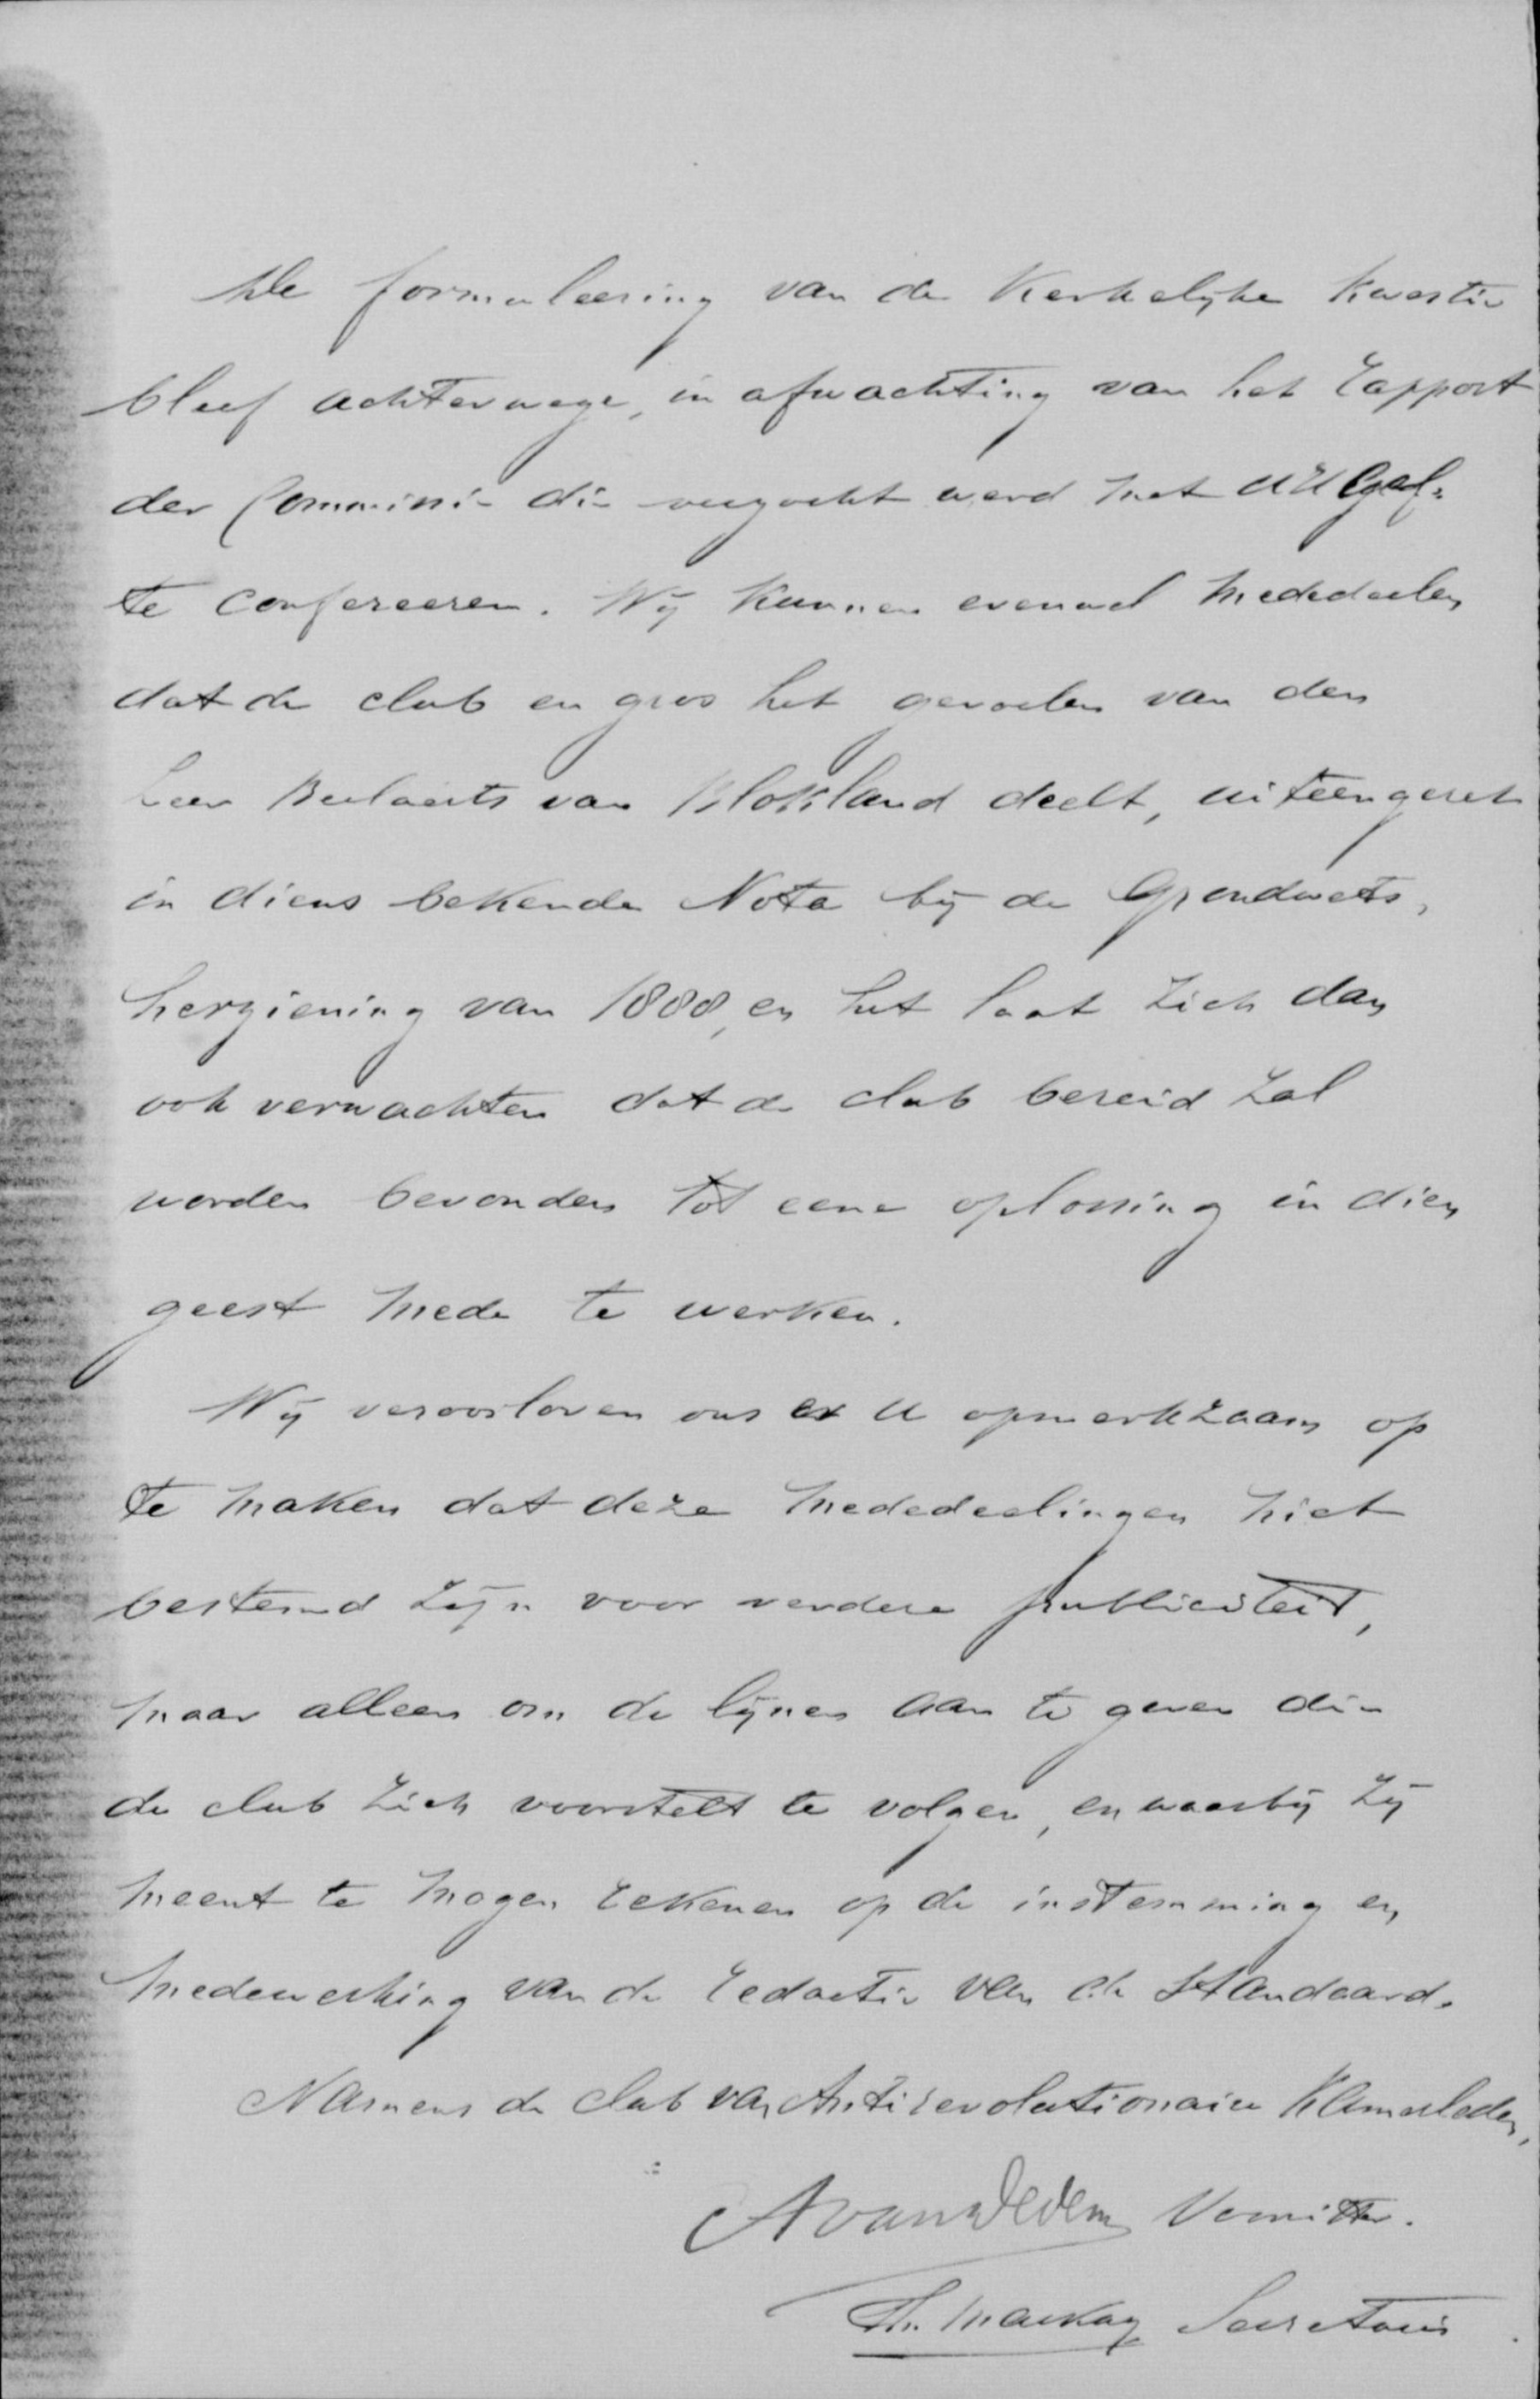 De formuleering van de Kerkelijke Kwestie
bleef achterwege, in afwachting van het rapport
der Commissie die verzocht werd met UHGel.
te confereeren. Wij kunnen evenwel mededeelen
dat de club en gros het gevoelen van den
heer Beelaerts van Blokland deelt, uiteengezet
in diens bekende Nota bij de Grondwets,
herziening van 1888, en het laat zich dan
ook verwachten dat de club bereid zal
worden bevonden tot eene oplossing in dien
geest mede te werken.
Wij veroorloven ons er U opmerkzaam op
te maken dat deze mededeelingen niet
bestemd zijn voor verdere publiciteit,
maar alleen om de lijnen aan te geven die
de club zich voorstelt te volgen, en waarbij zij
meent te mogen rekenen op de instemming en
medewerking van de redactie van de Standaard.
Namens de club van Antirevolutionaire Kamerleden,
A van Dedem Voorzitter.
Th. Mackay Secretaris